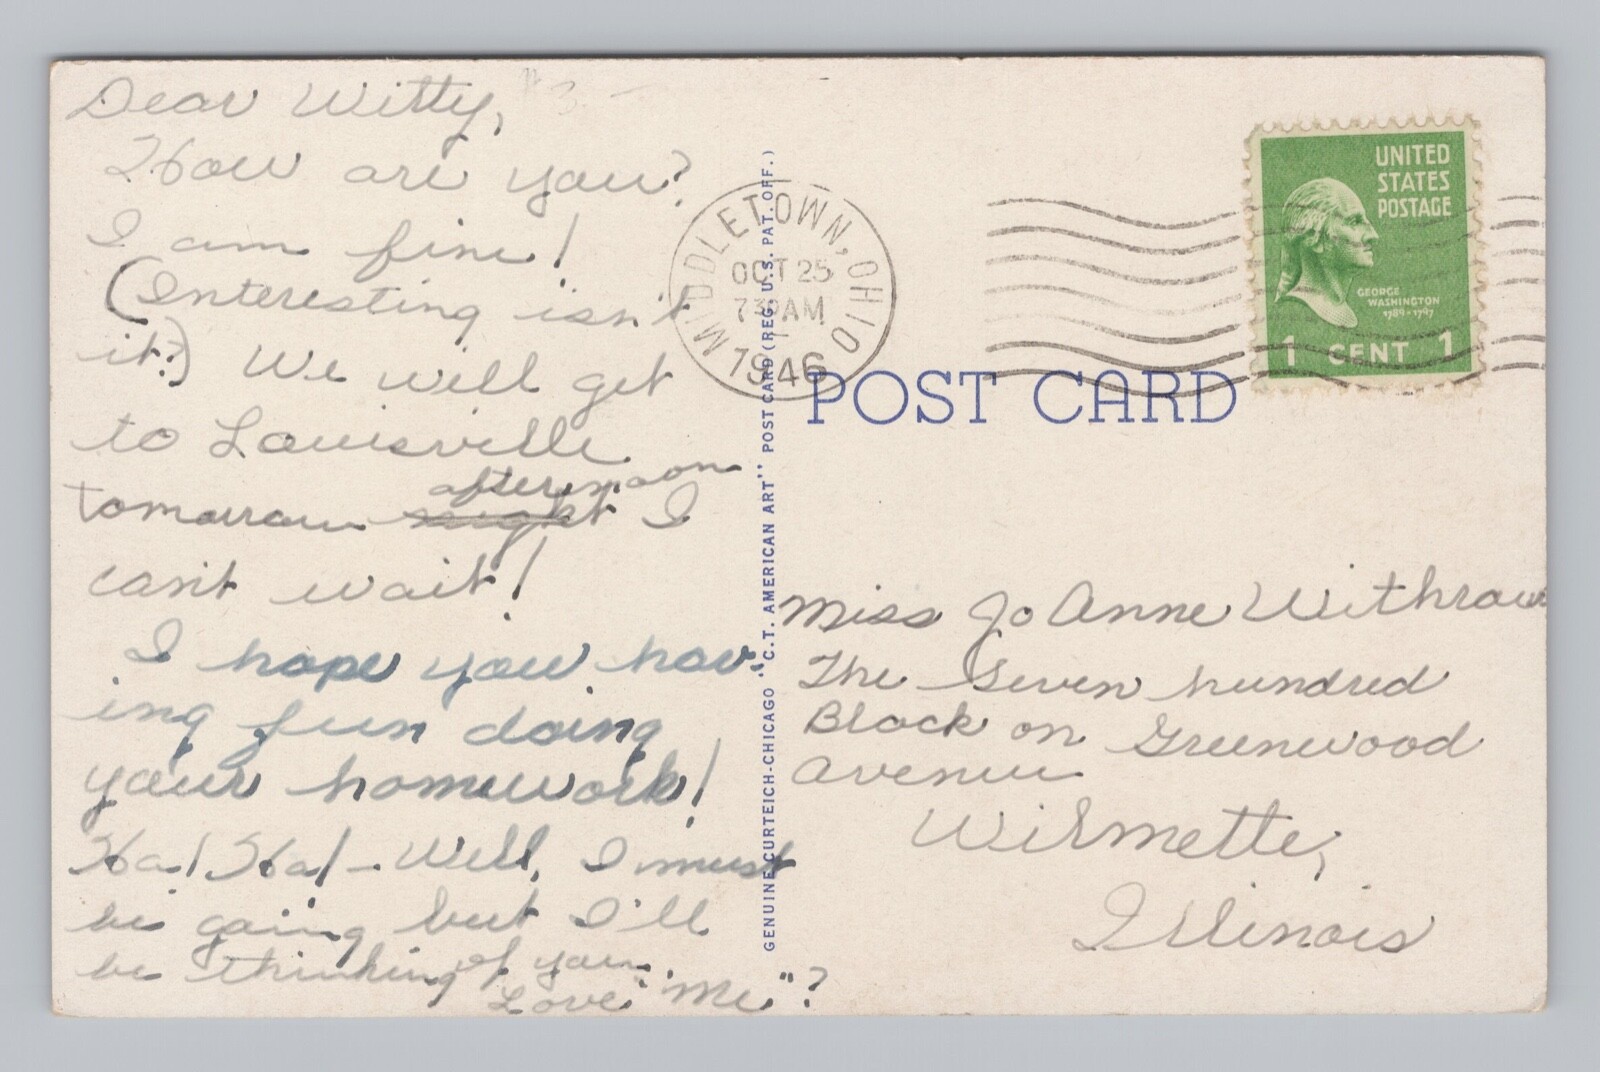 Dear Witty,
How are you?
I am fine!
(Interesting isn't
it?) We will get
to Louisville
afternoon
tomorrow night I
can't wait!
I hope you hav-
ing fun doing
your homework!
Ha! Ha! - Well, I must
be going but I'll
be thinking of you.
Love, "Me"?
GENUINE CURTEICH-CHICAGO "C.T. AMERICAN ART" POST CARD (REG. U.S. PAT. OFF.)
MIDDLETOWN, OHIO
OCT 25
7 30 AM
1946
UNITED
STATES
POSTAGE
GEORGE
WASHINGTON
1789-1797
1 CENT 1
POST CARD
Miss Jo Anne Withrow
The Seven hundred
Block on Greenwood
Avenue
Wilmette,
Illinois